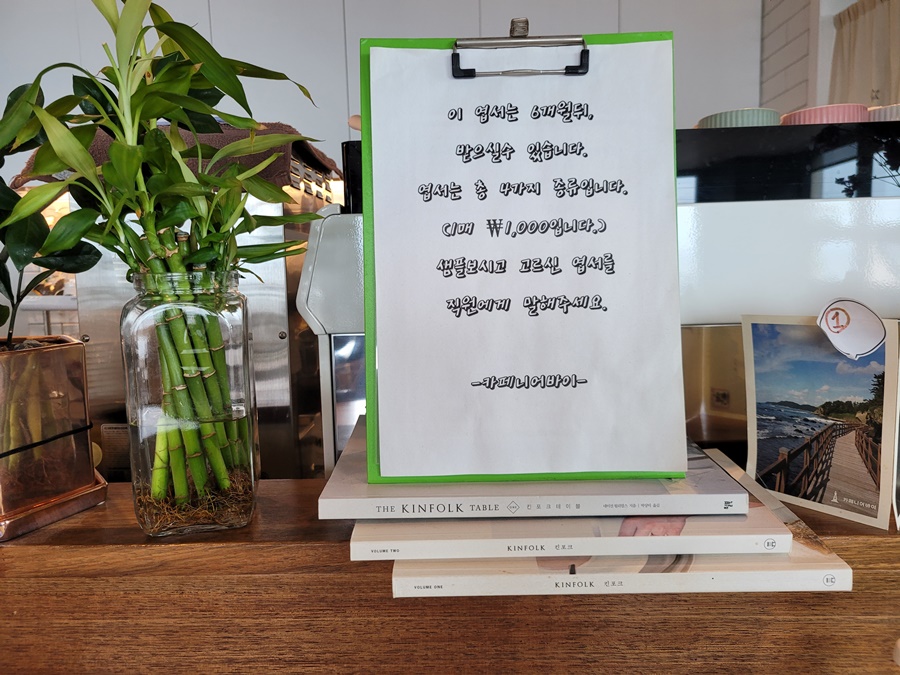 이 엽서는 6개월뒤,
받으실수 있습니다.
엽서는 총 4가지 종류입니다.
(1매 ₩1,000입니다.)
샘플보시고 고르신 엽서를
직원에게 말해주세요.
-카페니어바이-
1
카페니어바이
THE KINFOLK TABLE 킨포크 테이블
VOLUME TWO KINFOLK 킨포크
VOLUME ONE KINFOLK 킨포크